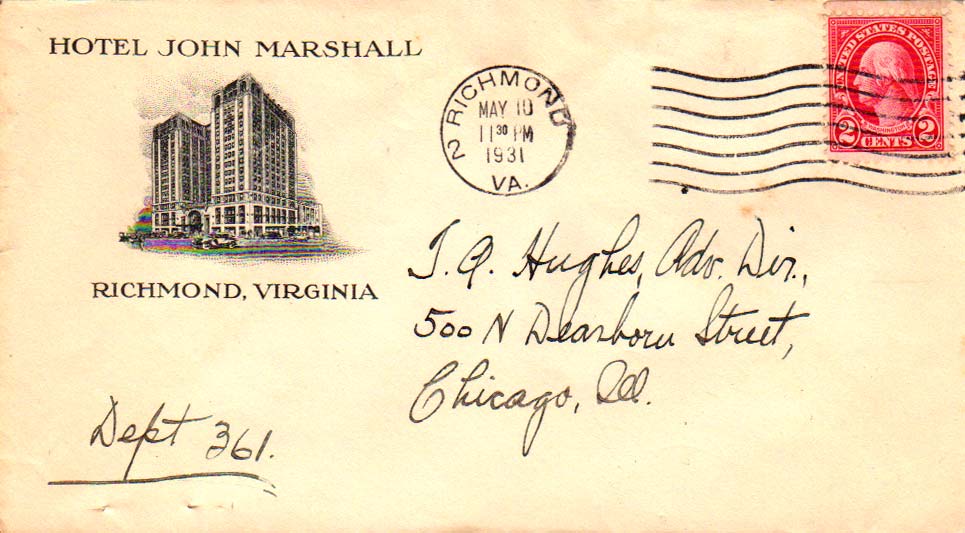 HOTEL JOHN MARSHALL
RICHMOND, VIRGINIA
2 RICHMOND
MAY 10
11 30 PM
1931
VA.
UNITED STATES POSTAGE
WASHINGTON
2 CENTS 2
J. Q. Hughes, Adv. Dir.,
500 N Dearborn Street,
Chicago, Ill.
Dept 361.